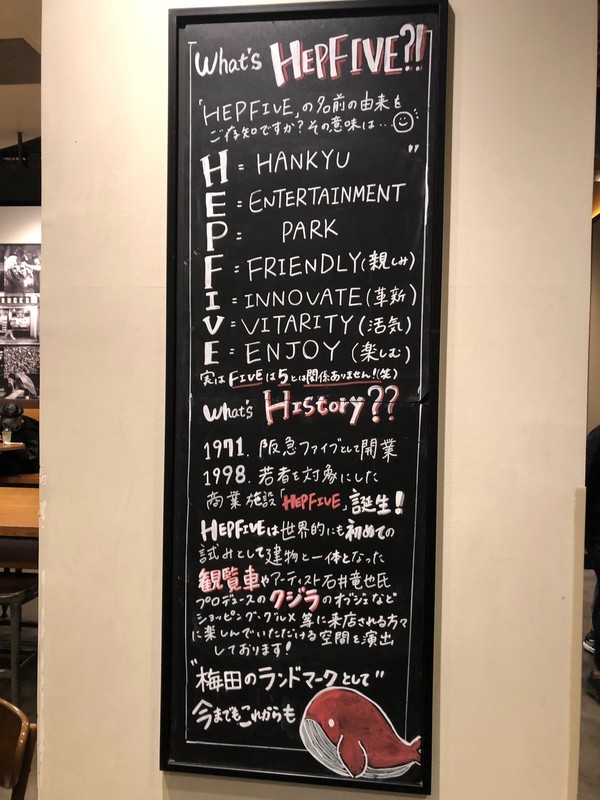 What's HEPFIVE?!
「HEPFIVE」の名前の由来を
ご存知ですか?その意味は…
H = HANKYU
E = ENTERTAINMENT
P = PARK
F = FRIENDLY(親しみ)
I = INNOVATE(革新)
V = VITARITY(活気)
E = ENJOY (楽しむ)
実はFIVEは5とは関係ありません!(笑)
What's History??
1971. 阪急ファイブとして開業
1998. 若者を対象にした
商業施設「HEPFIVE」誕生!
HEPFIVEは世界的にも初めての
試みとして建物と一体となった
観覧車やアーティスト石井竜也氏
プロデュースのクジラのオブジェなど
ショッピング・グルメ等に来店される方々
に楽しんでいただける空間を演出
しております!
"梅田のランドマークとして"
今までもこれからも